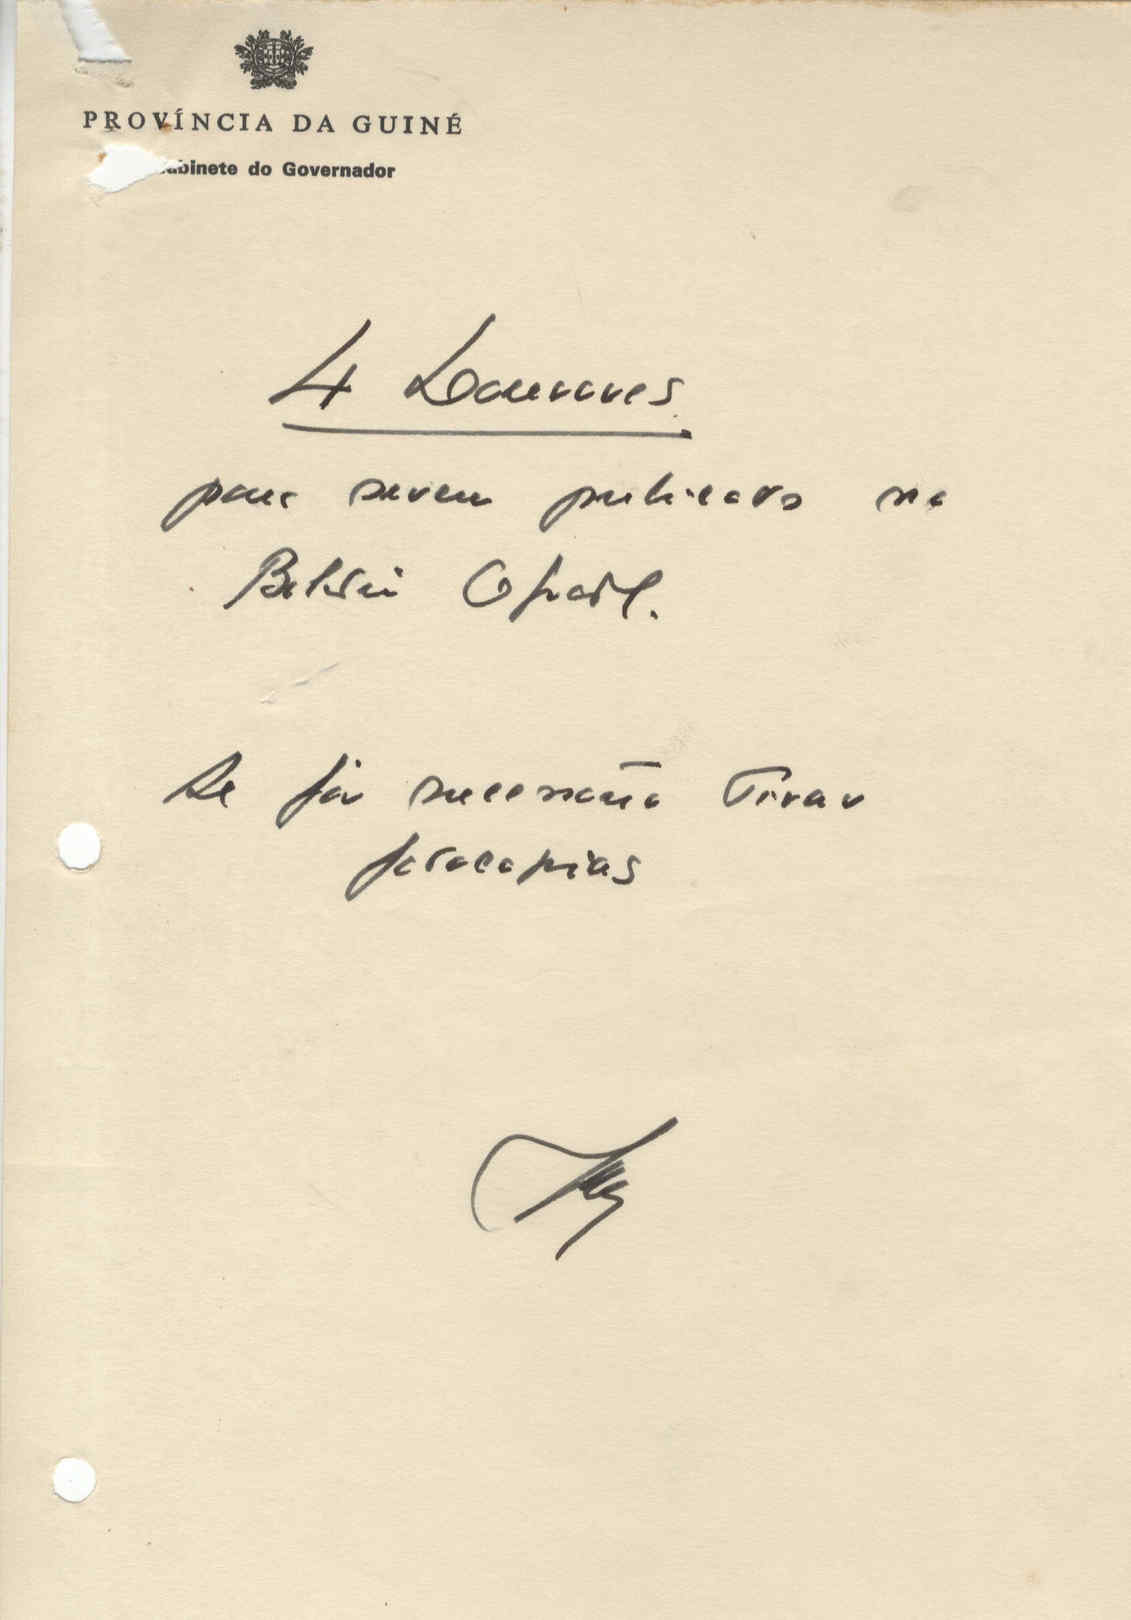 PROVÍNCIA DA GUINÉ
Gabinete do Governador
4 Louvores
para serem publicados no
Boletim Oficial.
Se fôr necessário tirar
fotocopias